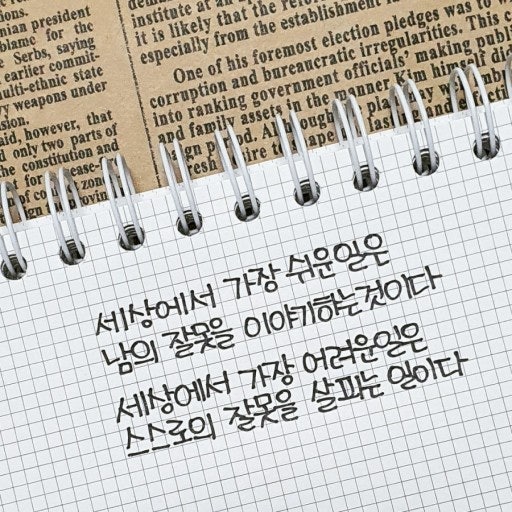 nian president
blame for the
Serbs, saying
earlier commit-
ulti-ethnic state
y weapons under
sion.
aid, however, that
d only two parts of
the constitution and
institute at an
it is likely that the refor
especially from the establishment
One of his foremost election pledges was to w
corruption and bureaucratic irregularities. This
into ranking government officials' making publ
and family assets in the manner Kim himself di
세상에서 가장 쉬운일은
남의 잘못을 이야기하는것이다
세상에서 가장 어려운일은
스스로의 잘못을 살피는 일이다